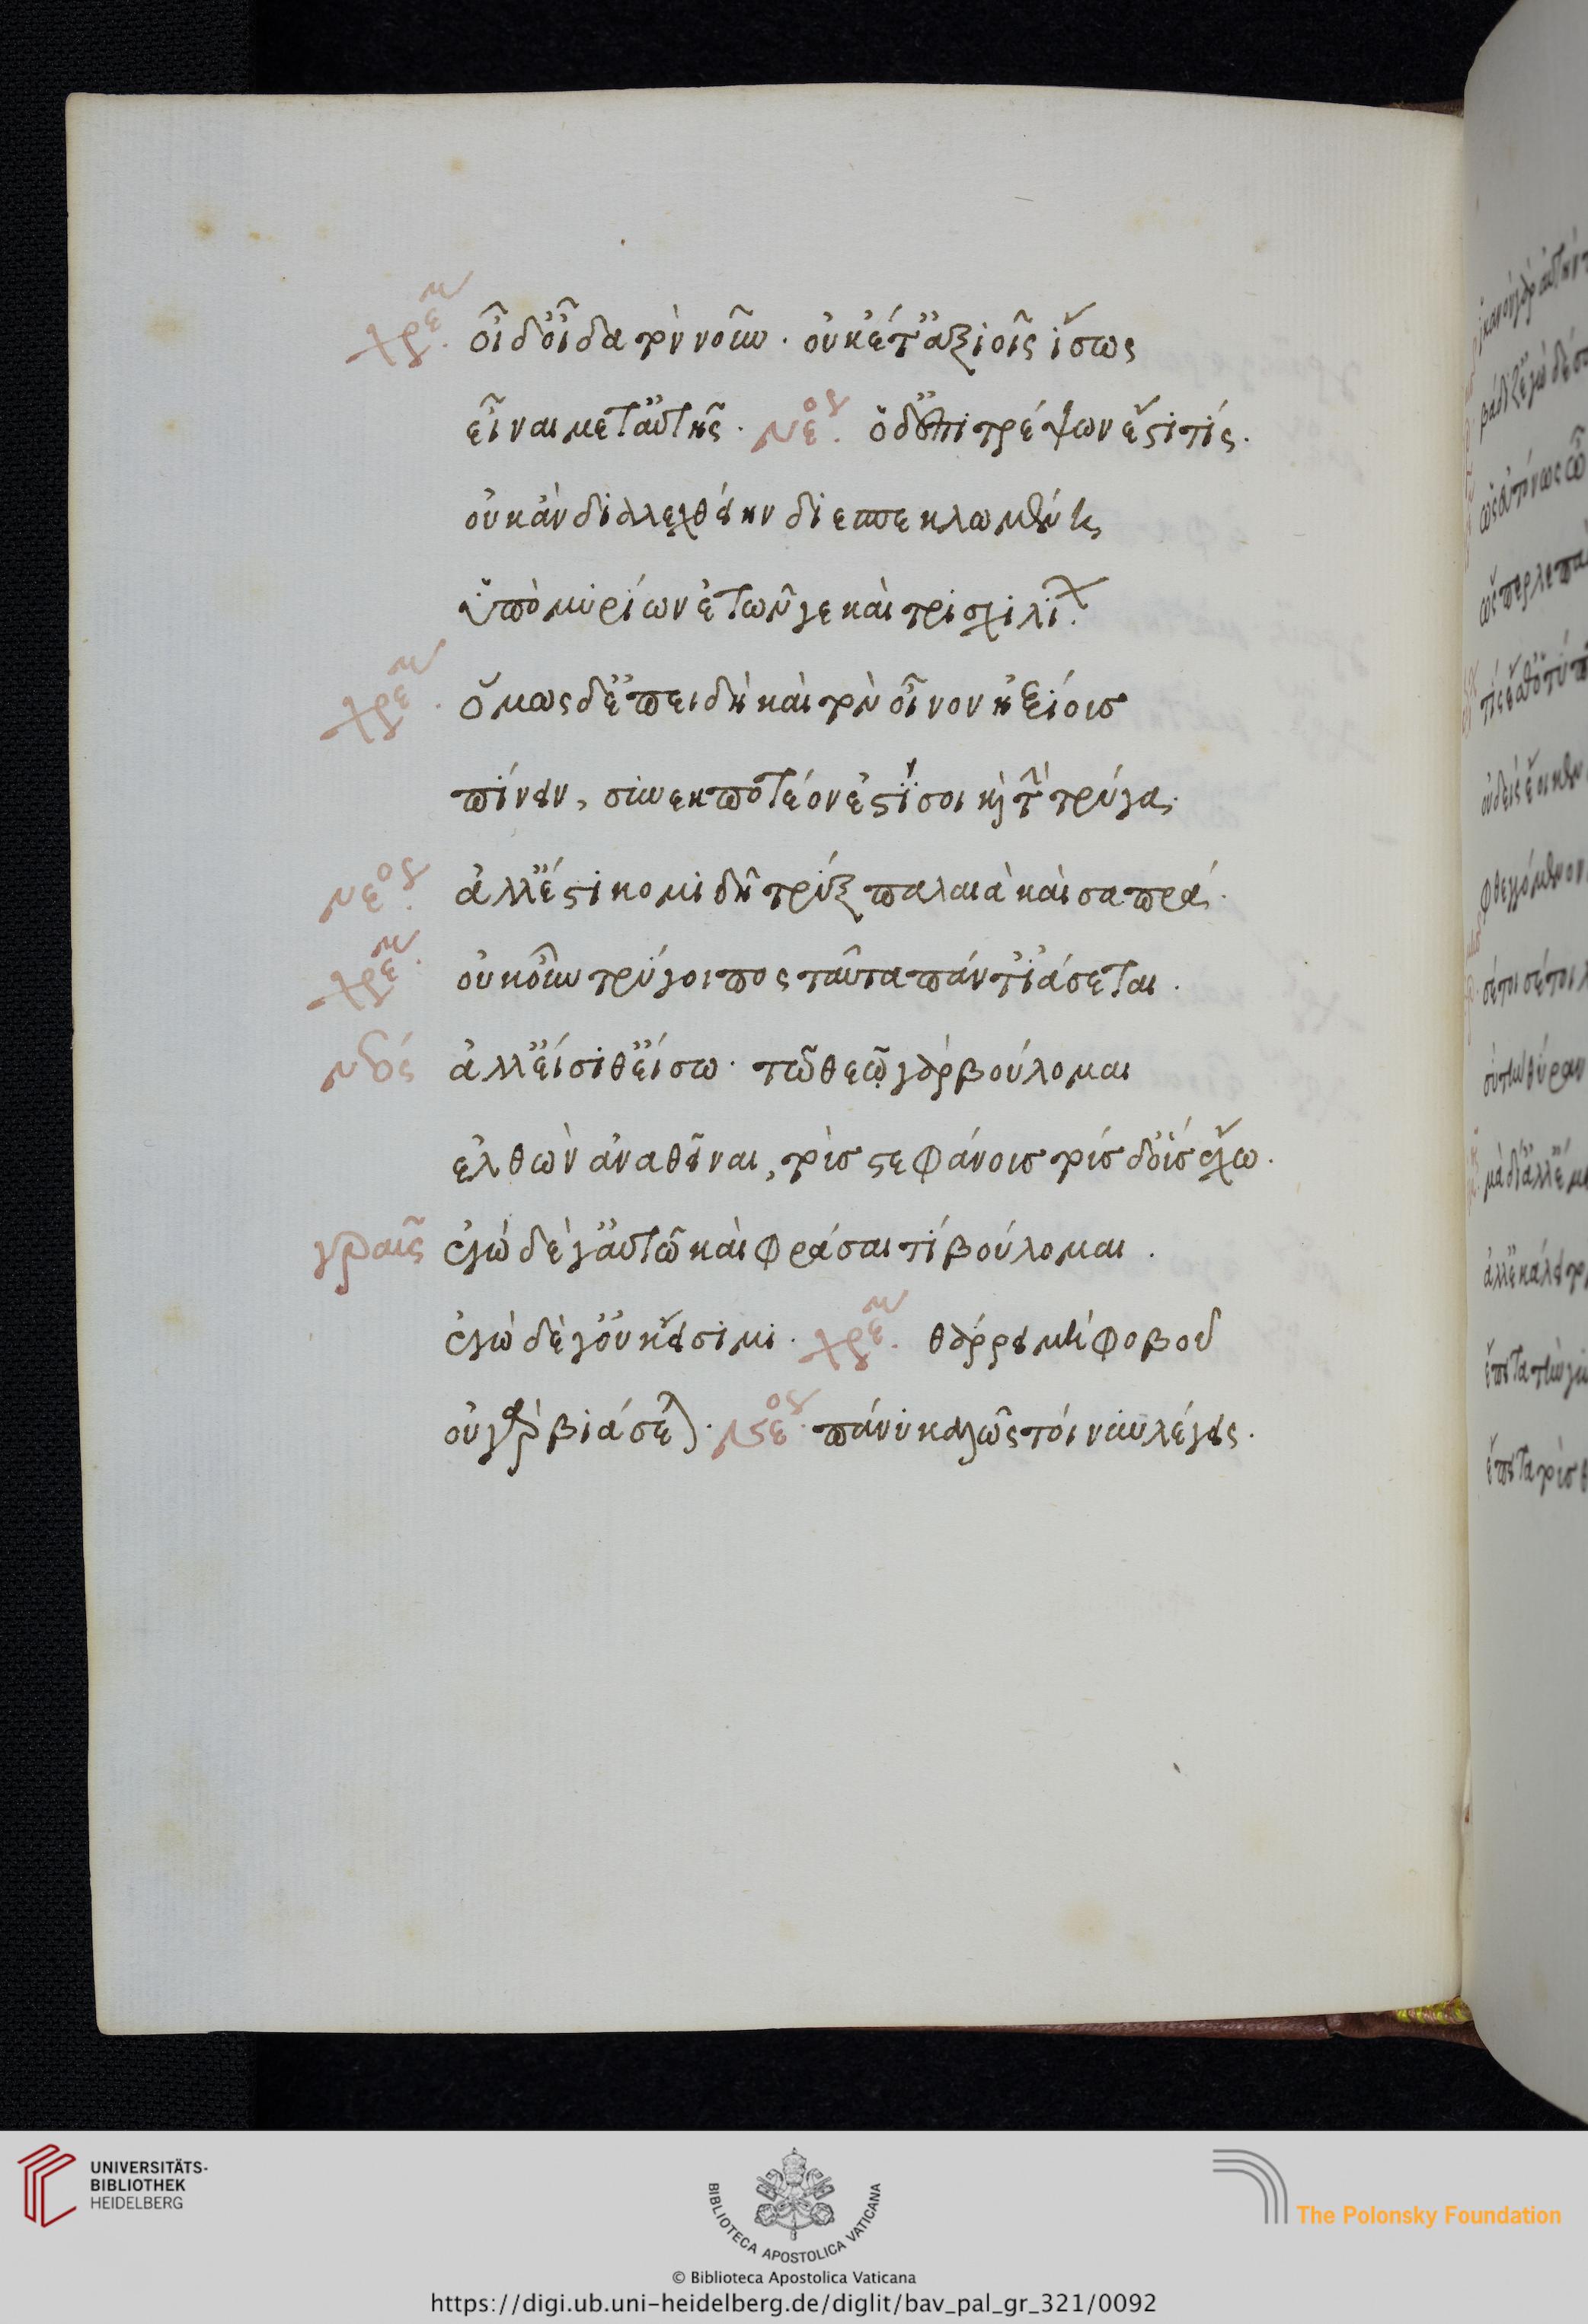 χρε οἶδ' οἶδα τὸν νοῦν· οὐκέτ' ἀξιοῖς ἴσως
εἶναι μετ' αὐτῆς. νεος. ὁ δ' ἐπιτρέψων ἐστὶ τίς.
οὐκ ἂν διαλεχθείην διεσπεκλωμένῃ
ὑπὸ μυρίων ἐτῶν γε καὶ τρισχιλίων.
χρε. ὅμως δ' ἐπειδὴ καὶ τὸν οἶνον ἠξίοις
πίνειν, συνεκποτέον ἐστί σοι καὶ τὴν τρύγα.
νεος. ἀλλ' ἔστι κομιδῇ τρὺξ παλαιὰ καὶ σαπρά.
χρε. οὐκοῦν τρύγοιπος ταῦτα πάντ' ἰάσεται.
νέος ἀλλ' εἴσιθ' εἴσω· τῷ θεῷ γὰρ βούλομαι
ἐλθὼν ἀναθεῖναι, τοὺς στεφάνους τούσδ' οὓς ἔχω.
γραῦς ἐγὼ δέ γ' αὐτῷ καὶ φράσαι τί βούλομαι.
ἐγὼ δέ γ' οὐκ εἴσιμι. χρε. θάρρει μὴ φοβοῦ
οὐ γὰρ βιάσεται. νεος. πάνυ καλῶς τοίνυν λέγεις.
UNIVERSITÄTS-
BIBLIOTHEK
HEIDELBERG
BIBLIOTECA APOSTOLICA VATICANA
The Polonsky Foundation
© Biblioteca Apostolica Vaticana
https://digi.ub.uni-heidelberg.de/diglit/bav_pal_gr_321/0092